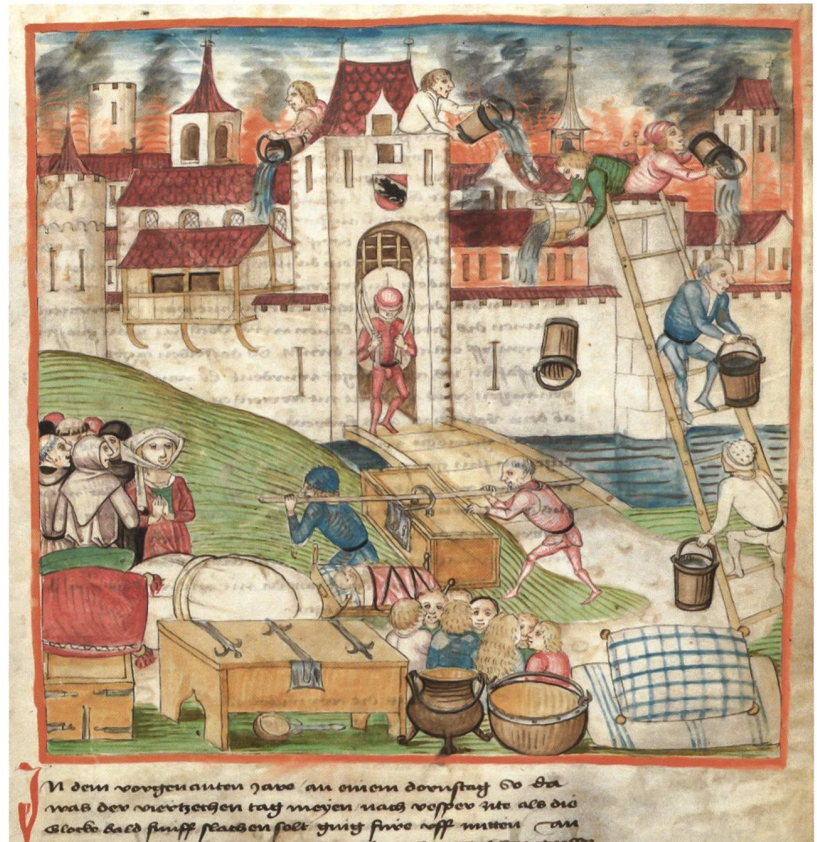 In dem vorgenanten Jare an einem dornstag So da
was der viertzechen tag meyen nach vesper zite als die
Glocke bald fünff slachen solt gieng füre uff mitten an